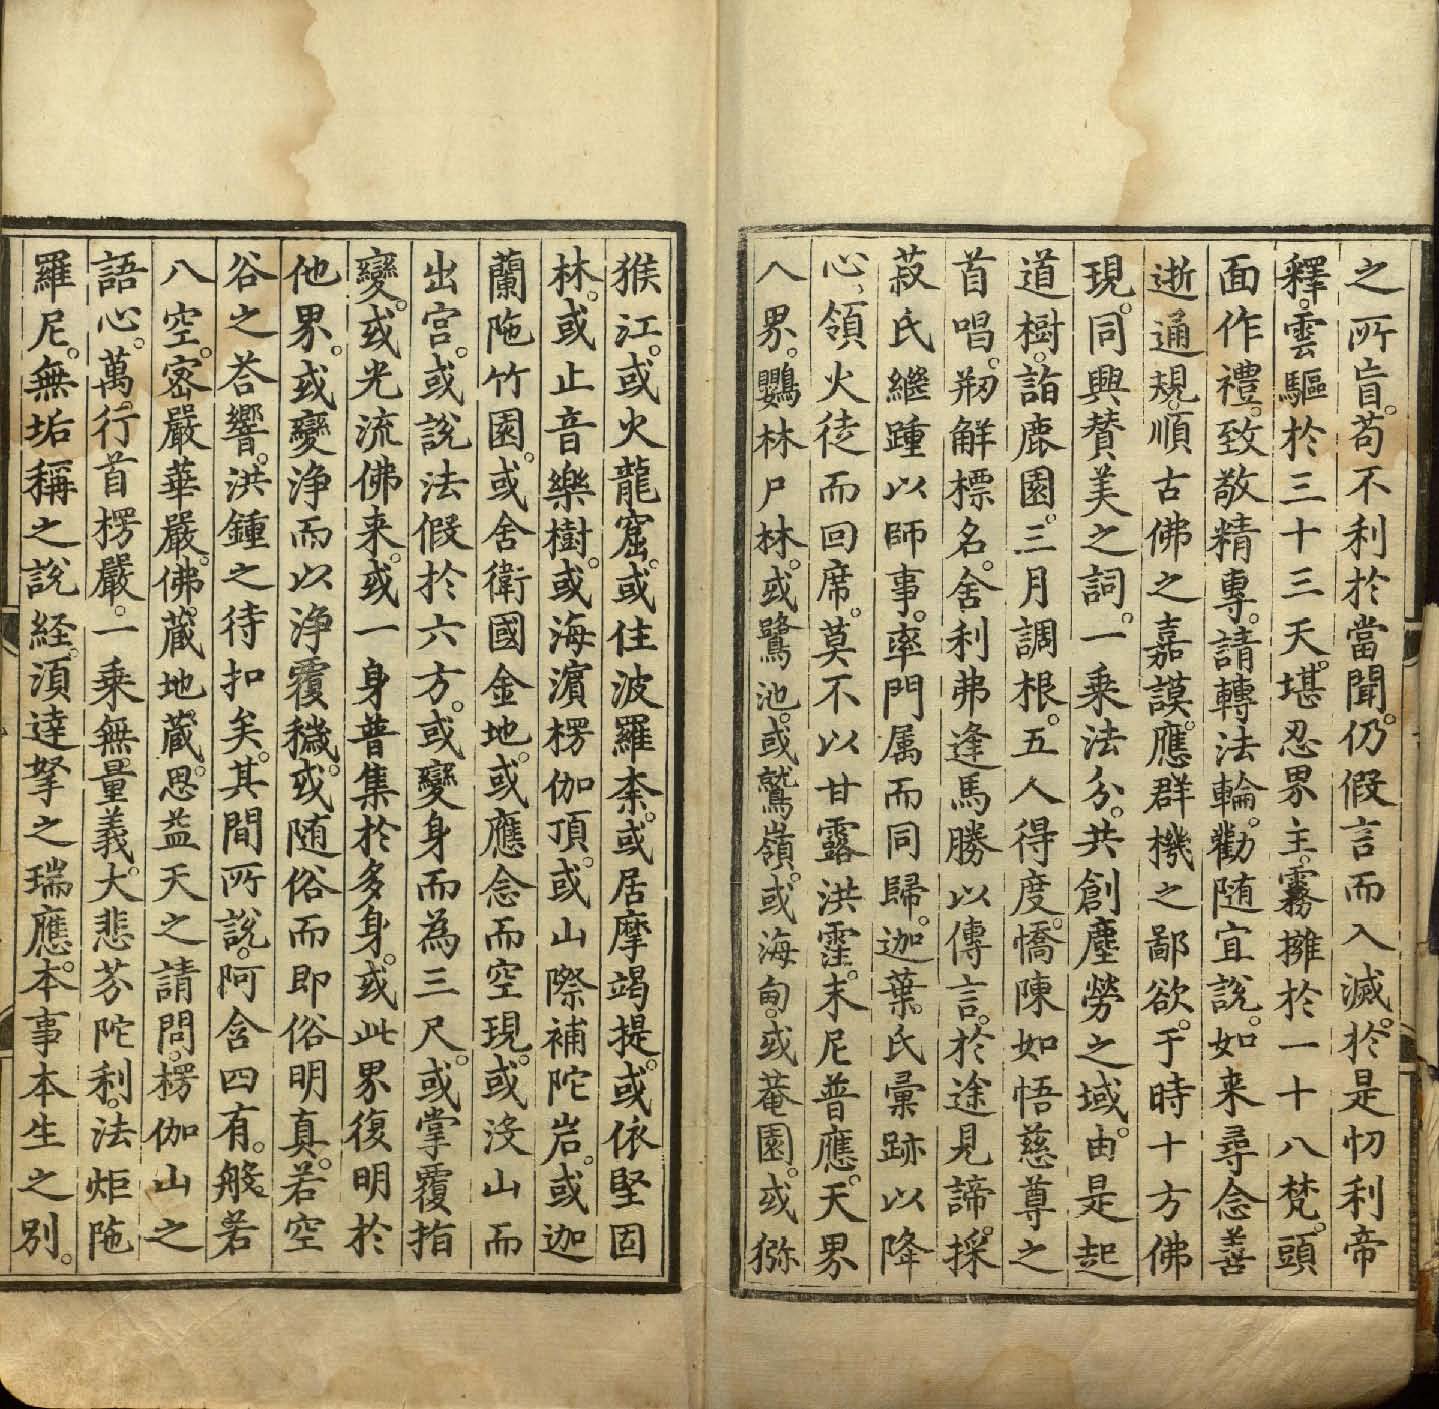 之所盲。苟不利於當聞。仍假言而入滅。於是忉利帝
釋。雲驅於三十三天。堪忍界主。霧擁於一十八梵。頭
面作禮。致敬精專。請轉法輪。勸随宜說。如来尋念善
逝通規。順古佛之嘉謨。應群機之鄙欲。于時十方佛
現。同興賛美之詞。一乘法分。共創塵勞之域。由是起
道樹。詣鹿園。三月調根。五人得度。憍陳如悟慈尊之
首唱。剏解標名。舍利弗逢馬勝以傳言。於途見諦。採
菽氏繼踵以師事。率門属而同歸。迦葉氏彙跡以降
心。領火徒而回席。莫不以甘露洪霔。末尼普應。天界
人界。鸚林尸林。或鷺池。或鷲嶺。或海甸。或菴園。或獼
猴江。或火龍窟。或住波羅柰。或居摩竭提。或依堅固
林。或止音樂樹。或海濵楞伽頂。或山際補陀岩。或迦
蘭陁竹園。或舍衛國金地。或應念而空現。或没山而
出宫。或說法假於六方。或變身而為三尺。或掌覆指
變。或光流佛来。或一身普集於多身。或此界復明於
他界。或變浄而以浄覆穢。或随俗而即俗明真。若空
谷之荅響。洪鍾之待扣矣。其間所說。阿含四有。般若
八空。宻嚴華嚴。佛藏地藏。思益天之請問。楞伽山之
語心。萬行首楞嚴。一乘無量義。大悲芬陀利。法炬陁
羅尼。無垢稱之說経。湏達拏之瑞應。本事本生之别。